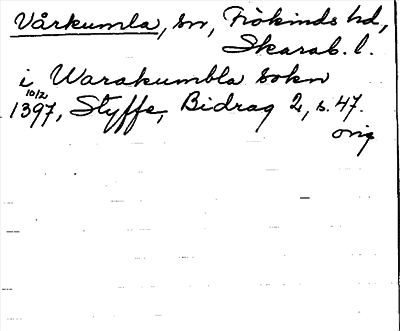 Vårkumla, sn, Frökinds hd,
Skarab. l.
i Warakumbla sokn
10/2
1397, Styffe, Bidrag 2, s. 47.
orig